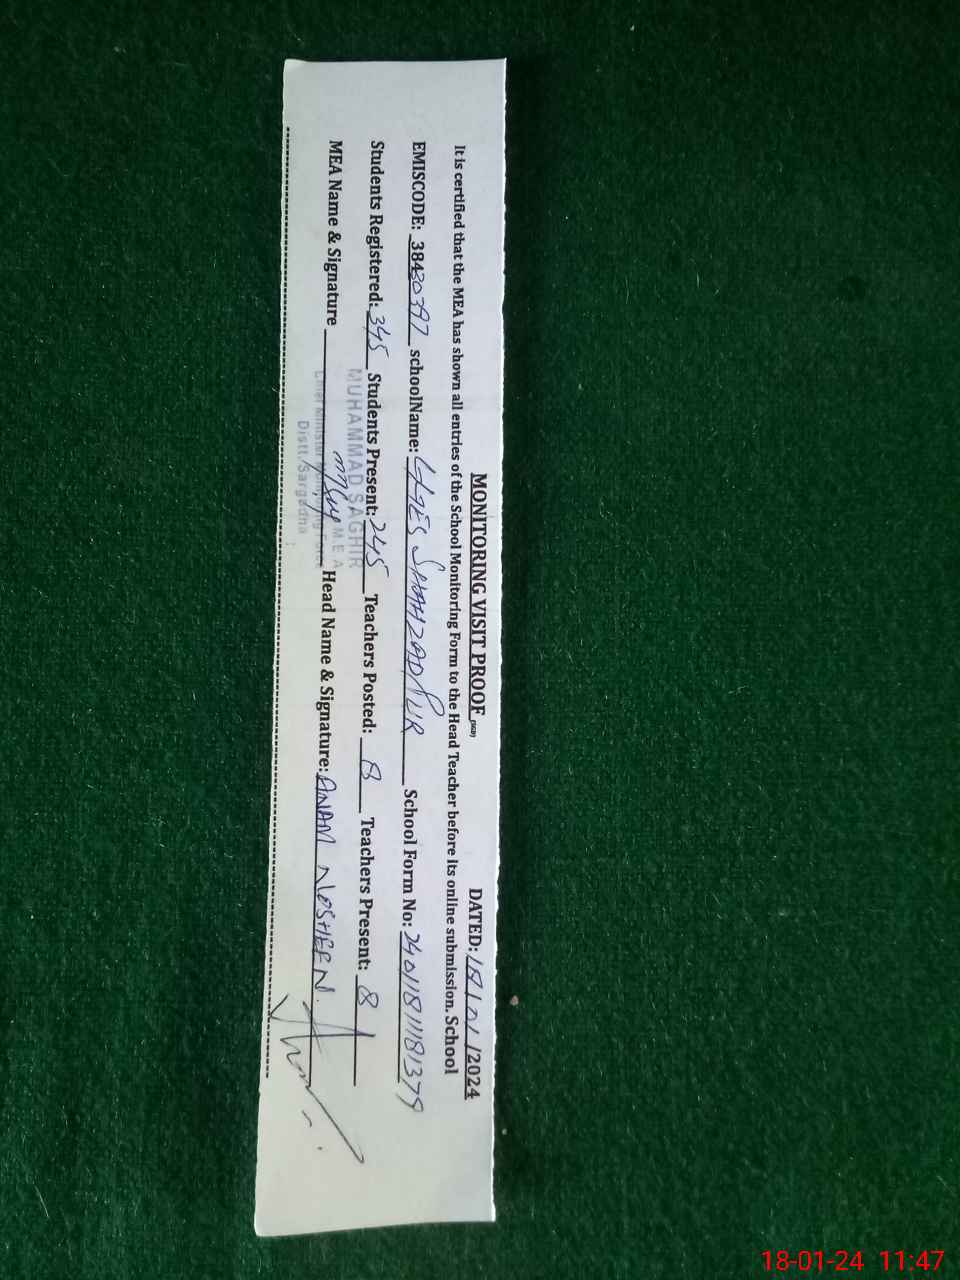 MONITORING VISIT PROOF (SGD) DATED: 18/01/2024
It is certified that the MEA has shown all entries of the School Monitoring Form to the Head Teacher before its online submission. School
EMISCODE: 38430397 schoolName: SHAHZADPUR School Form No: 24011811181379
Students Registered: 345 Students Present: 245 Teachers Posted: 8 Teachers Present: 8
MUHAMMAD SAGHIR
MEA
MEA Name & Signature Head Name & Signature: ANAM NOSHEEN.
Chief Minister Monitoring Force
Distt. Sargodha
18-01-24 11:47